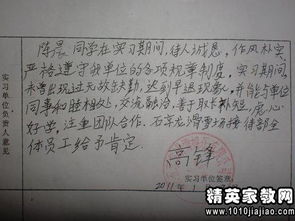 陈晨同学在实习期间,待人诚恳,作风朴实,
严格遵守我单位的各项规章制度,实习期间,
未曾出现过无故缺勤,迟到早退现象,并能与单位
同事和睦相处,交流融洽,善于取长补短,虚心
好学,注重团队合作。石京龙滑雪场接待部全
体员工给予肯定。
高峰
实习单位签章
2011年1
实习单位负责人意见
精英家教网
www.1010jiajiao.com